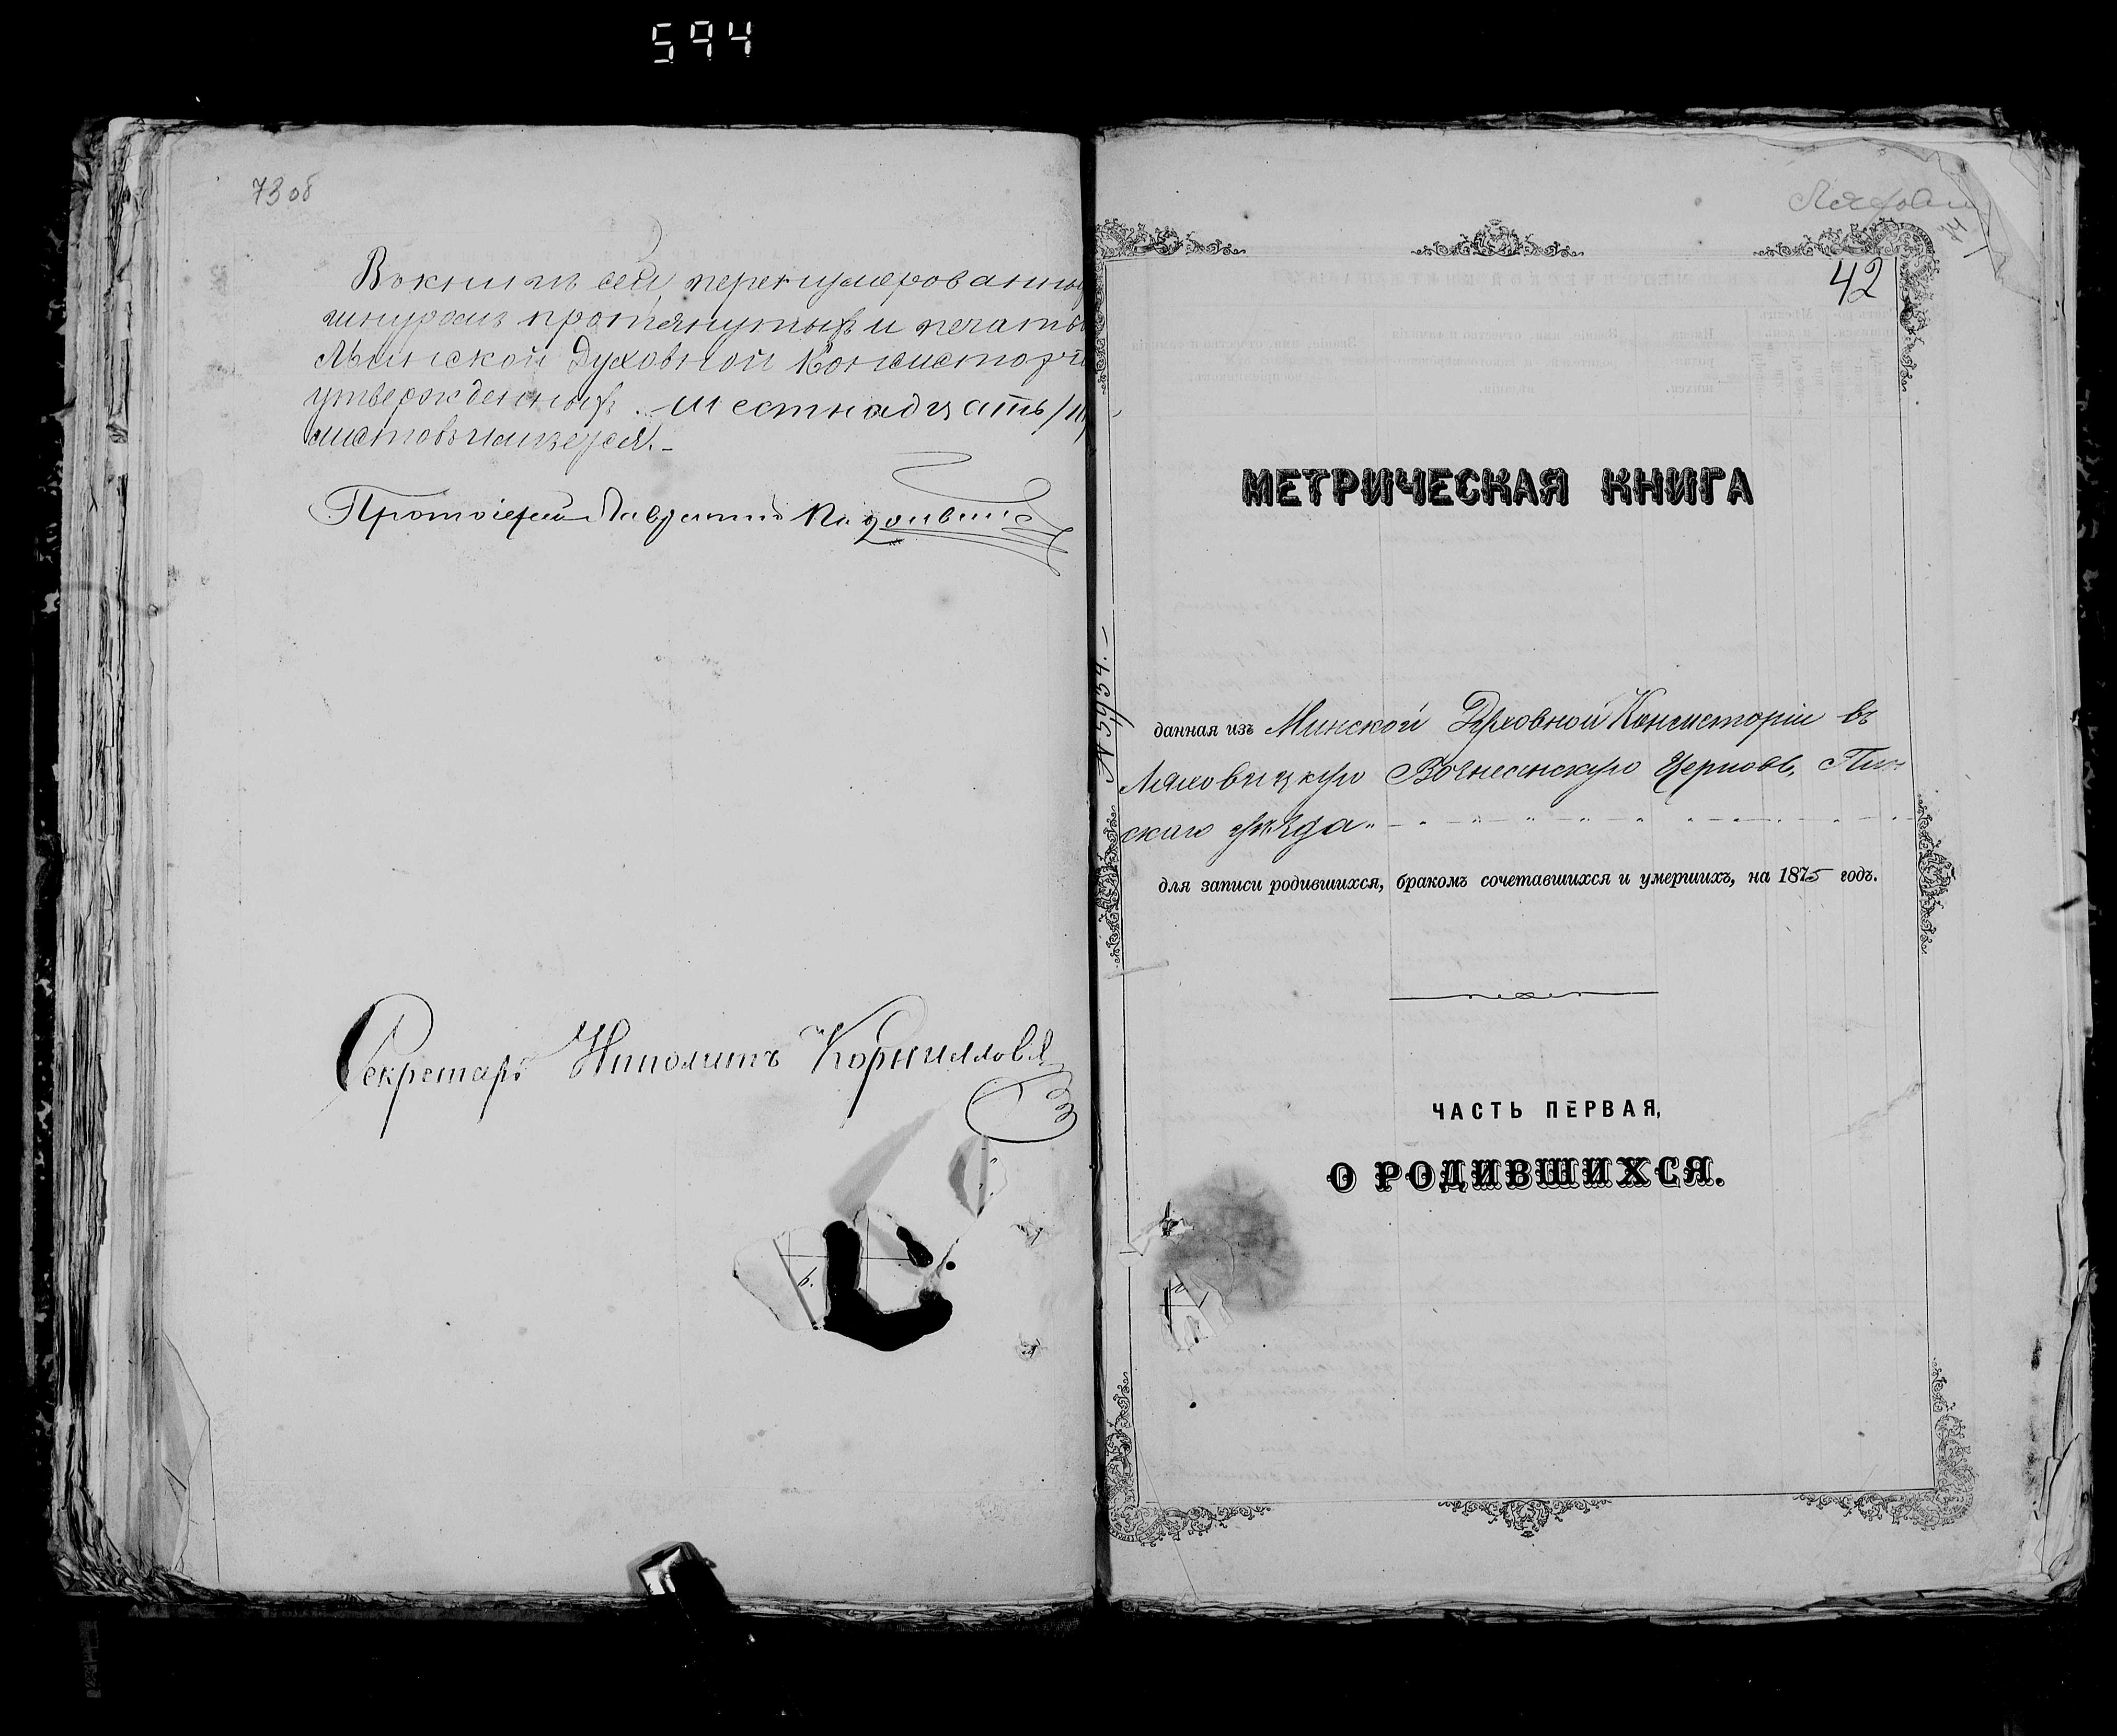 594
73 об
Въ книгѣ сей, перенумерованныхъ
шнуромъ протянутыхъ и печатью
Минской Духовной Консисторіи
утвержденныхъ шестнадцать
листовъ имѣется.
Протоіерей Лаврентій
Секретарь Иполитъ Корнилловъ
42
МЕТРИЧЕСКАЯ КНИГА
№ 5954.
данная изъ Минской Духовной Консисторіи въ
Ляховицкую Вознесенскую Церковь, Пин-
скаго уѣзда
для записи родившихся, бракомъ сочетавшихся и умершихъ, на 1875 годъ.
ЧАСТЬ ПЕРВАЯ,
О РОДИВШИХСЯ.